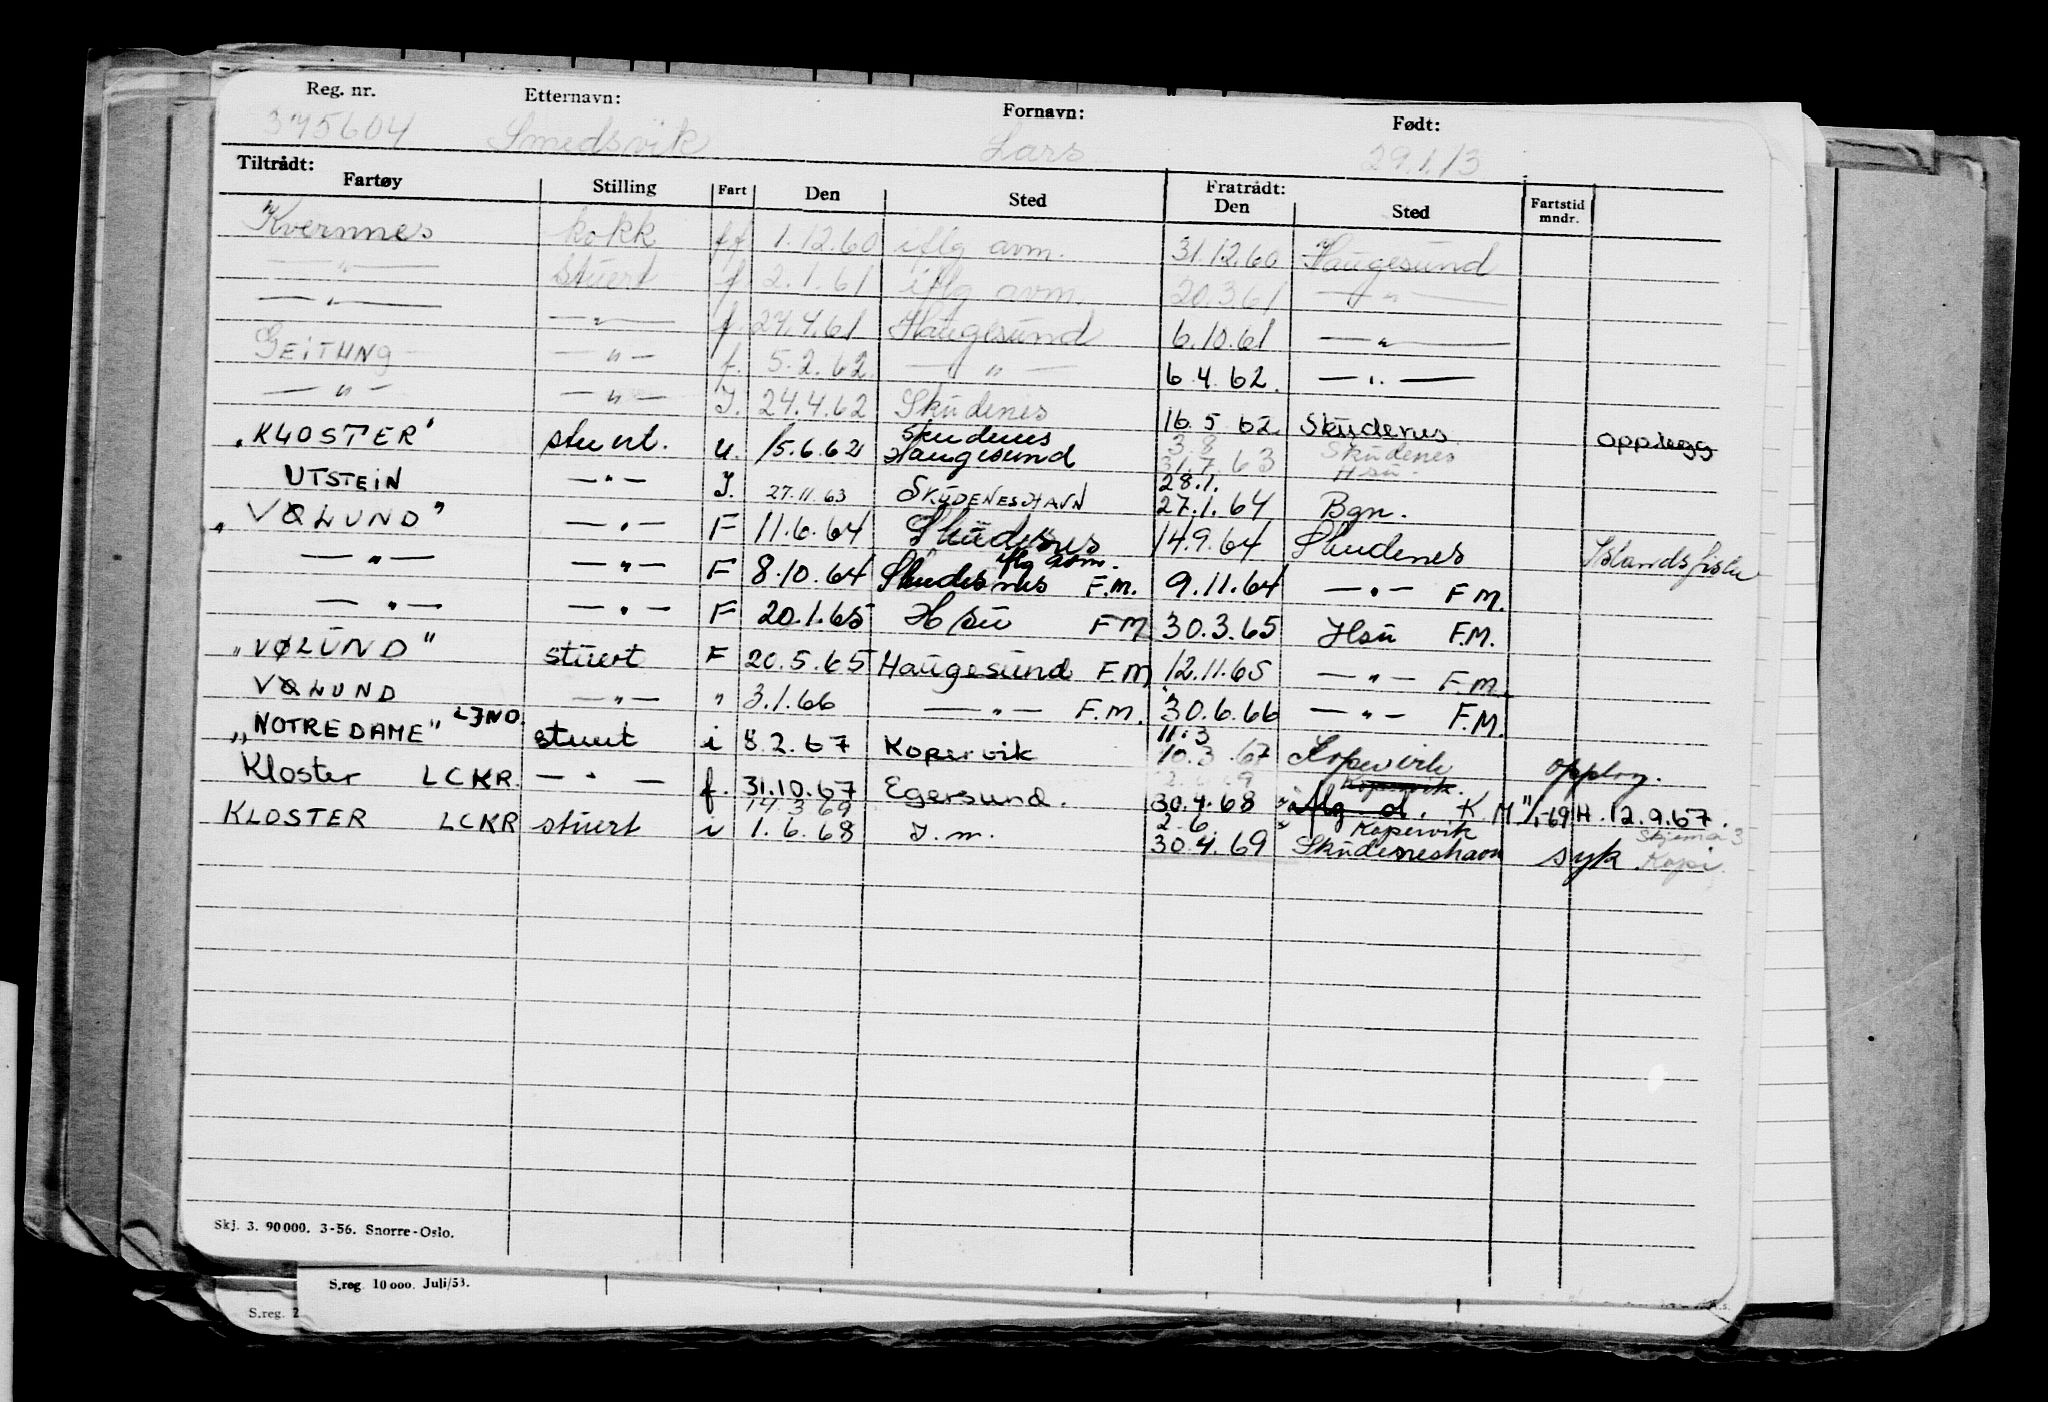 Reg. nr. Etternavn: Fornavn: Født:
375604 Smedsvik Lars 29.1.13
Tiltrådt: Fratrådt:
Fartøy Stilling Fart Den Sted Den Sted Fartstid mndr.
Kvernnes kokk ff 1.12.60 iflg avm. 31.12.60 Haugesund
— " — stuert f. 2.1.61 iflg avm. 20.3.61 — " —
— " — — " — f. 27.4.61 Haugesund 6.10.61 — " —
GEITUNG — " — f. 5.2.62 — " — 6.4.62. — " —
— " — — " — I. 24.4.62 Skudenes 16.5.62 Skudenes opplegg
"KLOSTER" stuert. u. 15.6.62 Skudenes Haugesund 3.8 31.7.63 Skudenes Hsu
UTSTEIN — " — I. 27.11.63 SKUDENESHAVN 28.1. 27.1.64 Bgn.
"VØLUND" — " — F 11.6.64 Skudenes 14.9.64 Skudenes Islandsfiske
— " — — " — F 8.10.64 Skudesnes iflg avm. F.M. 9.11.64 — " — F.M.
— " — — " — F 20.1.65 Hsu F.M 30.3.65 Hsu F.M.
"VØLUND" stuert F 20.5.65 Haugesund F.M 12.11.65 — " — F.M.
VØLUND — " — " 3.1.66 — " — F.M. 30.6.66 — " — F.M.
"NOTRE DAME" LJNO. stuert i 8.2.67 Kopervik 11.3 10.3.67 Kopervik opplag.
Kloster LCKR. — " — f. 31.10.67 Egersund. 30.4.68 Kopervik. iflg d. K M 1-69 H. 12.9.67.
KLOSTER LCKR stuert i 14.3.69 1.6.68 I.m. 2.6 30.4.69 Kopervik Skudeneshavn syk Skjema 3 Kopi.
Skj. 3. 90000. 3-56. Snorre-Oslo.
S.reg. 10000. Juli/53.
S.reg. 2